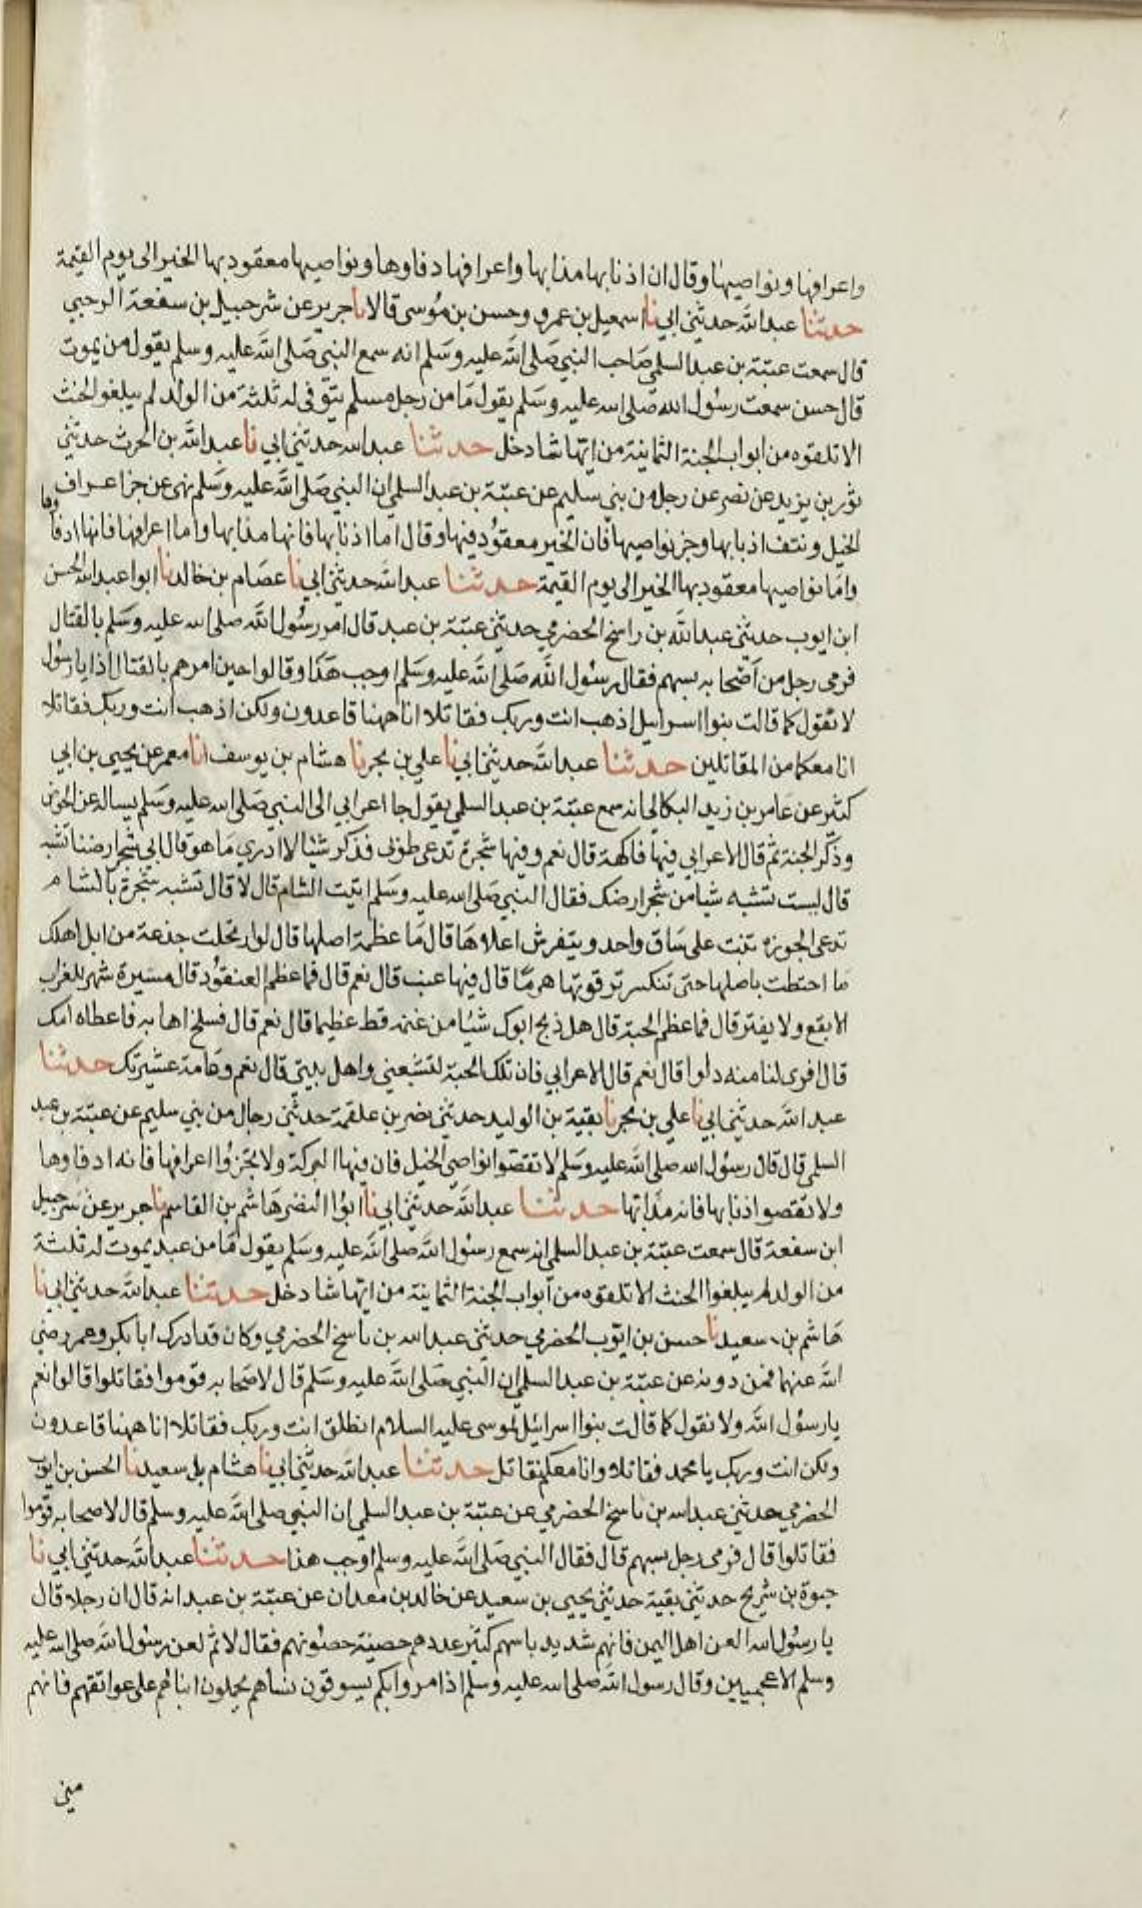 واعرافها ونواصيها وقال ان اذنابها مذابها واعرافها دفاوها ونواصيها معقود بها الخير الى يوم القيمة
حدثنا عبد الله حدثني ابي نا اسمعيل بن عمرو وحسن بن موسى قالا نا جرير عن شرحبيل بن سفعة الرحبي
قال سمعت عتبة بن عبد السلمي صاحب النبي صلى الله عليه وسلم انه سمع النبي صلى الله عليه وسلم يقول من يموت
قال حسن سمعت رسول الله صلى الله عليه وسلم يقول ما من رجل مسلم يتوفى له ثلثة من الولد لم يبلغوا الحنث
الا تلقوه من ابواب الجنة الثمانية من ايها شا دخل حدثنا عبد الله حدثني ابي نا عبد الله بن الحرث حدثني
ثور بن يزيد عن نصر عن رجل من بني سليم عن عتبة بن عبد السلمي ان النبي صلى الله عليه وسلم نهى عن جز اعراف
الخيل ونتف اذنابها وجز نواصيها فان الخير معقود فيها وقال اما اذنابها فانها مذابها واما اعرافها فانها ادفاوها
واما نواصيها معقود بها الخير الى يوم القيمة حدثنا عبد الله حدثني ابي نا عصام بن خالد نا ابوا عبد الله الحسن
ابن ايوب حدثني عبد الله بن راسخ الحضرمي حدثني عتبة بن عبد قال امر رسول الله صلى الله عليه وسلم بالقتال
فرمى رجل من اضحابه بسهم فقال رسول الله صلى الله عليه وسلم اوجب هذا وقالوا حين امرهم بالقتال اذا يا رسول
لا نقول كما قالت بنوا اسراييل اذهب انت وربك فقاتلا انا ههنا قاعدون ولكن اذهب انت وربك فقاتلا
انا معكما من المقاتلين حدثنا عبد الله حدثني ابي نا علي بن بحر نا هشام بن يوسف انا معمر عن يحيى بن ابي
كثير عن عامر بن زيد البكالي انه سمع عتبة بن عبد السلمي يقول جا اعرابي الى النبي صلى الله عليه وسلم يساله عن الحوض
وذكر الجنة ثم قال الاعرابي فيها فاكهة قال نعم وفيها شجرة تدعى طوبى فذكر شيئا لا ادري ما هو قال اي شجر ارضنا تشبه
قال ليست تشبه شيا من شجر ارضك فقال النبي صلى الله عليه وسلم اتيت الشام قال لا قال تشبه شجرة بالشام
تدعى الجوزة تنبت على ساق واحد وينفرش اعلاها قال ما عظمة اصلها قال لو ارتحلت جذعة من ابل اهلك
ما احتطت باصلها حتى تنكسر ترقوتها هرما قال فيها عنب قال نعم قال فما عظم العنقود قال مسيرة شهر للغراب
الابقع ولا يفتر قال فما عظم الحبة قال هل ذبح ابوك شيئا من غنمه قط عظيما قال نعم قال فسلخ اهابه فاعطاه امك
قال افري لنا منه دلوا قال نعم قال الاعرابي فان تلك الحبة لتشبعني واهل بيتي قال نعم وعامة عشيرتك حدثنا
عبد الله حدثني ابي نا علي بن بحر نا بقية بن الوليد حدثني نضر بن علقمة حدثني رجال من بني سليم عن عتبة بن عبد
السلمي قال قال رسول الله صلى الله عليه وسلم لا تقصوا نواصي الخيل فان فيها البركة ولا تجزوا اعرافها فانه ادفاوها
ولا تقصوا اذنابها فانه مذابها حدثنا عبد الله حدثني ابي نا ابوا النضر هاشم بن القاسم نا جرير عن شرحبيل
ابن سفعة قال سمعت عتبة بن عبد السلمي انه سمع رسول الله صلى الله عليه وسلم يقول ما من عبد يموت له ثلثة
من الولد لم يبلغوا الحنث الا تلقوه من ابواب الجنة الثمانية من ايها شا دخل حدثنا عبد الله حدثني ابي نا
هاشم بن سعيد نا حسن بن ايوب الحضرمي حدثني عبد الله بن ناسخ الحضرمي وكان قد ادرك ابا بكر وعمر رضي
الله عنهما فمن دونه عن عتبة بن عبد السلمي ان النبي صلى الله عليه وسلم قال لاصحابه قوموا فقاتلوا قالوا نعم
يا رسول الله ولا نقول كما قالت بنوا اسرائيل لموسى عليه السلام انطلق انت وربك فقاتلا انا ههنا قاعدون
ولكن انت وربك يا محمد فقاتلا وانا معكم نقاتل حدثنا عبد الله حدثني ابي نا هشام بن سعيد نا الحسن بن ايوب
الحضرمي حدثني عبد الله بن ناسخ الحضرمي عن عتبة بن عبد السلمي ان النبي صلى الله عليه وسلم قال لاصحابه قوموا
فقاتلوا قال فرمى رجل بسهم قال فقال النبي صلى الله عليه وسلم اوجب هذا حدثنا عبد الله حدثني ابي نا
حيوة بن شريح حدثني بقية حدثني يحيى بن سعيد عن خالد بن معدان عن عتبة بن عبد انه قال ان رجلا قال
يا رسول الله العن اهل اليمن فانهم شديد باسهم كثير عددهم حصينة حصونهم فقال لا ثم لعن رسول الله صلى الله عليه
وسلم الاعجميين وقال رسول الله صلى الله عليه وسلم اذا مروا بكم يسوقون نساهم يحملون ابناهم على عواتقهم فانهم
مني